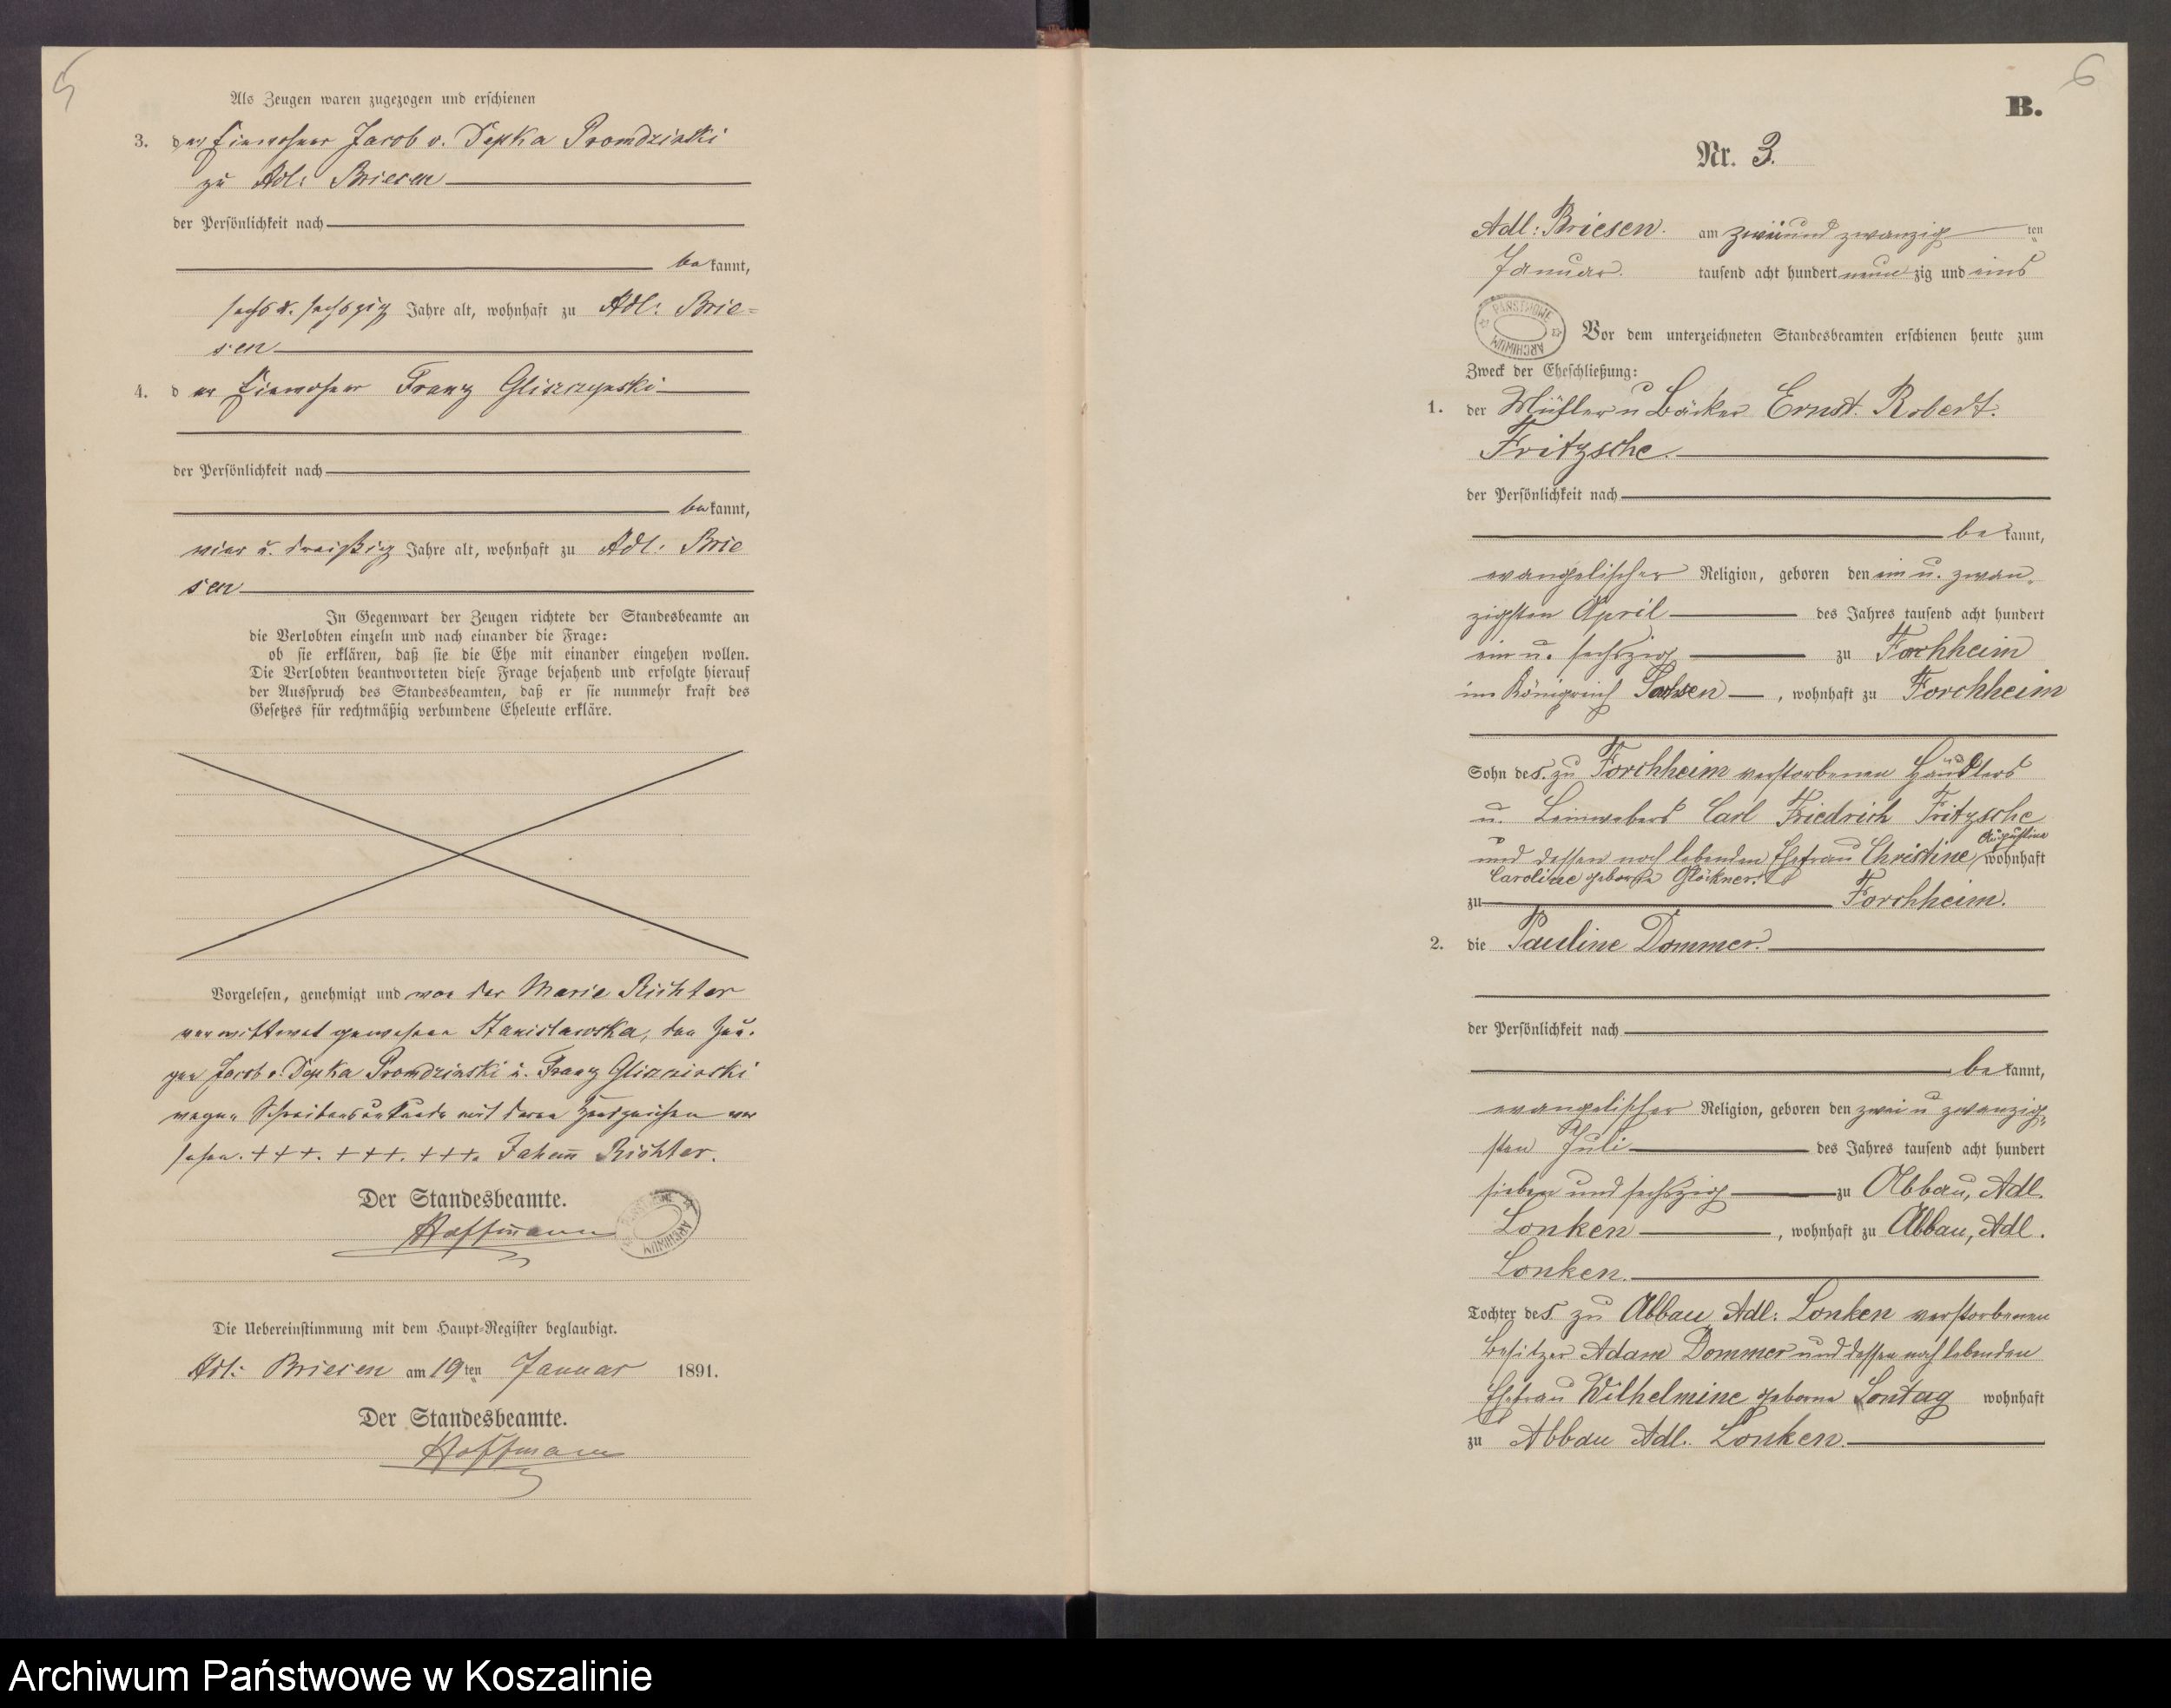 5
Als Zeugen waren zugezogen und erschienen
3. der Einwohner Jacob v. Depka Prondzinski
zu Adl: Briesen
der Persönlichkeit nach
bekannt,
sechs u. sechszig Jahre alt, wohnhaft zu Adl: Brie=
sen
4. der Einwohner Franz Gliszczynski
der Persönlichkeit nach
bekannt,
vier u. dreißig Jahre alt, wohnhaft zu Adl: Brie
sen
In Gegenwart der Zeugen richtete der Standesbeamte an
die Verlobten einzeln und nach einander die Frage:
ob sie erklären, daß sie die Ehe mit einander eingehen wollen.
Die Verlobten beantworteten diese Frage bejahend und erfolgte hierauf
der Ausspruch des Standesbeamten, daß er sie nunmehr kraft des
Gesetzes für rechtmäßig verbundene Eheleute erkläre.
Vorgelesen, genehmigt und von der Marie Richter
verwittwet gewesene Stanislawska, den Zeu-
gen Jacob v. Depka Prondzinski u. Franz Gliszinski
wegen Schreibensunkunde mit deren Handzeichen ver
sehen. +++. +++. +++. Richter.
Der Standesbeamte.
Hoffmann
ARCHIWUM PAŃSTWOWE
Die Uebereinstimmung mit dem Haupt-Register beglaubigt.
Adl: Briesen am 19ten Januar 1891.
Der Standesbeamte.
Hoffmann
6
B.
Nr. 3.
Adl: Briesen. am zweiundzwanzig ten
Januar. tausend acht hundert neunzig und eins
PAŃSTWOWE ARCHIWUM
Vor dem unterzeichneten Standesbeamten erschienen heute zum
Zweck der Eheschließung:
1. der Müller u Bäcker Ernst Robert.
Fritzsche.
der Persönlichkeit nach
bekannt,
evangelischer Religion, geboren den ein u. zwan
zigsten April des Jahres tausend acht hundert
ein u. sechszig zu Forchheim
im Königreich Sachsen, wohnhaft zu Forchheim
Sohn des zu Forchheim verstorbenen Häuslers
u. Leinwebers Carl Friedrich Fritzsche
Augustine
und dessen noch lebenden Ehefrau Christine, wohnhaft
Caroline geborne Glöckner.
zu Forchheim.
2. die Pauline Dommer.
der Persönlichkeit nach
bekannt,
evangelischer Religion, geboren den zwei u zwanzig-
sten Juli des Jahres tausend acht hundert
sieben und sechszig zu Abbau, Adl.
Lonken, wohnhaft zu Abbau, Adl.
Lonken.
Tochter des zu Abbau Adl: Lonken verstorbenen
Besitzer Adam Dommer und dessen noch lebenden
Ehefrau Wilhelmine geborne Sontag wohnhaft
zu Abbau Adl. Lonken.
Archiwum Państwowe w Koszalinie